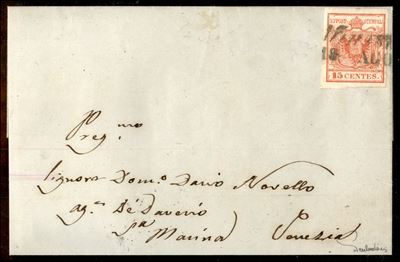 KKPOST-STEMPEL
15 CENTES.
Preg.mo
Signore Dom.o Dario Novello
ag.a de Daverio
Sta Marina Venezia